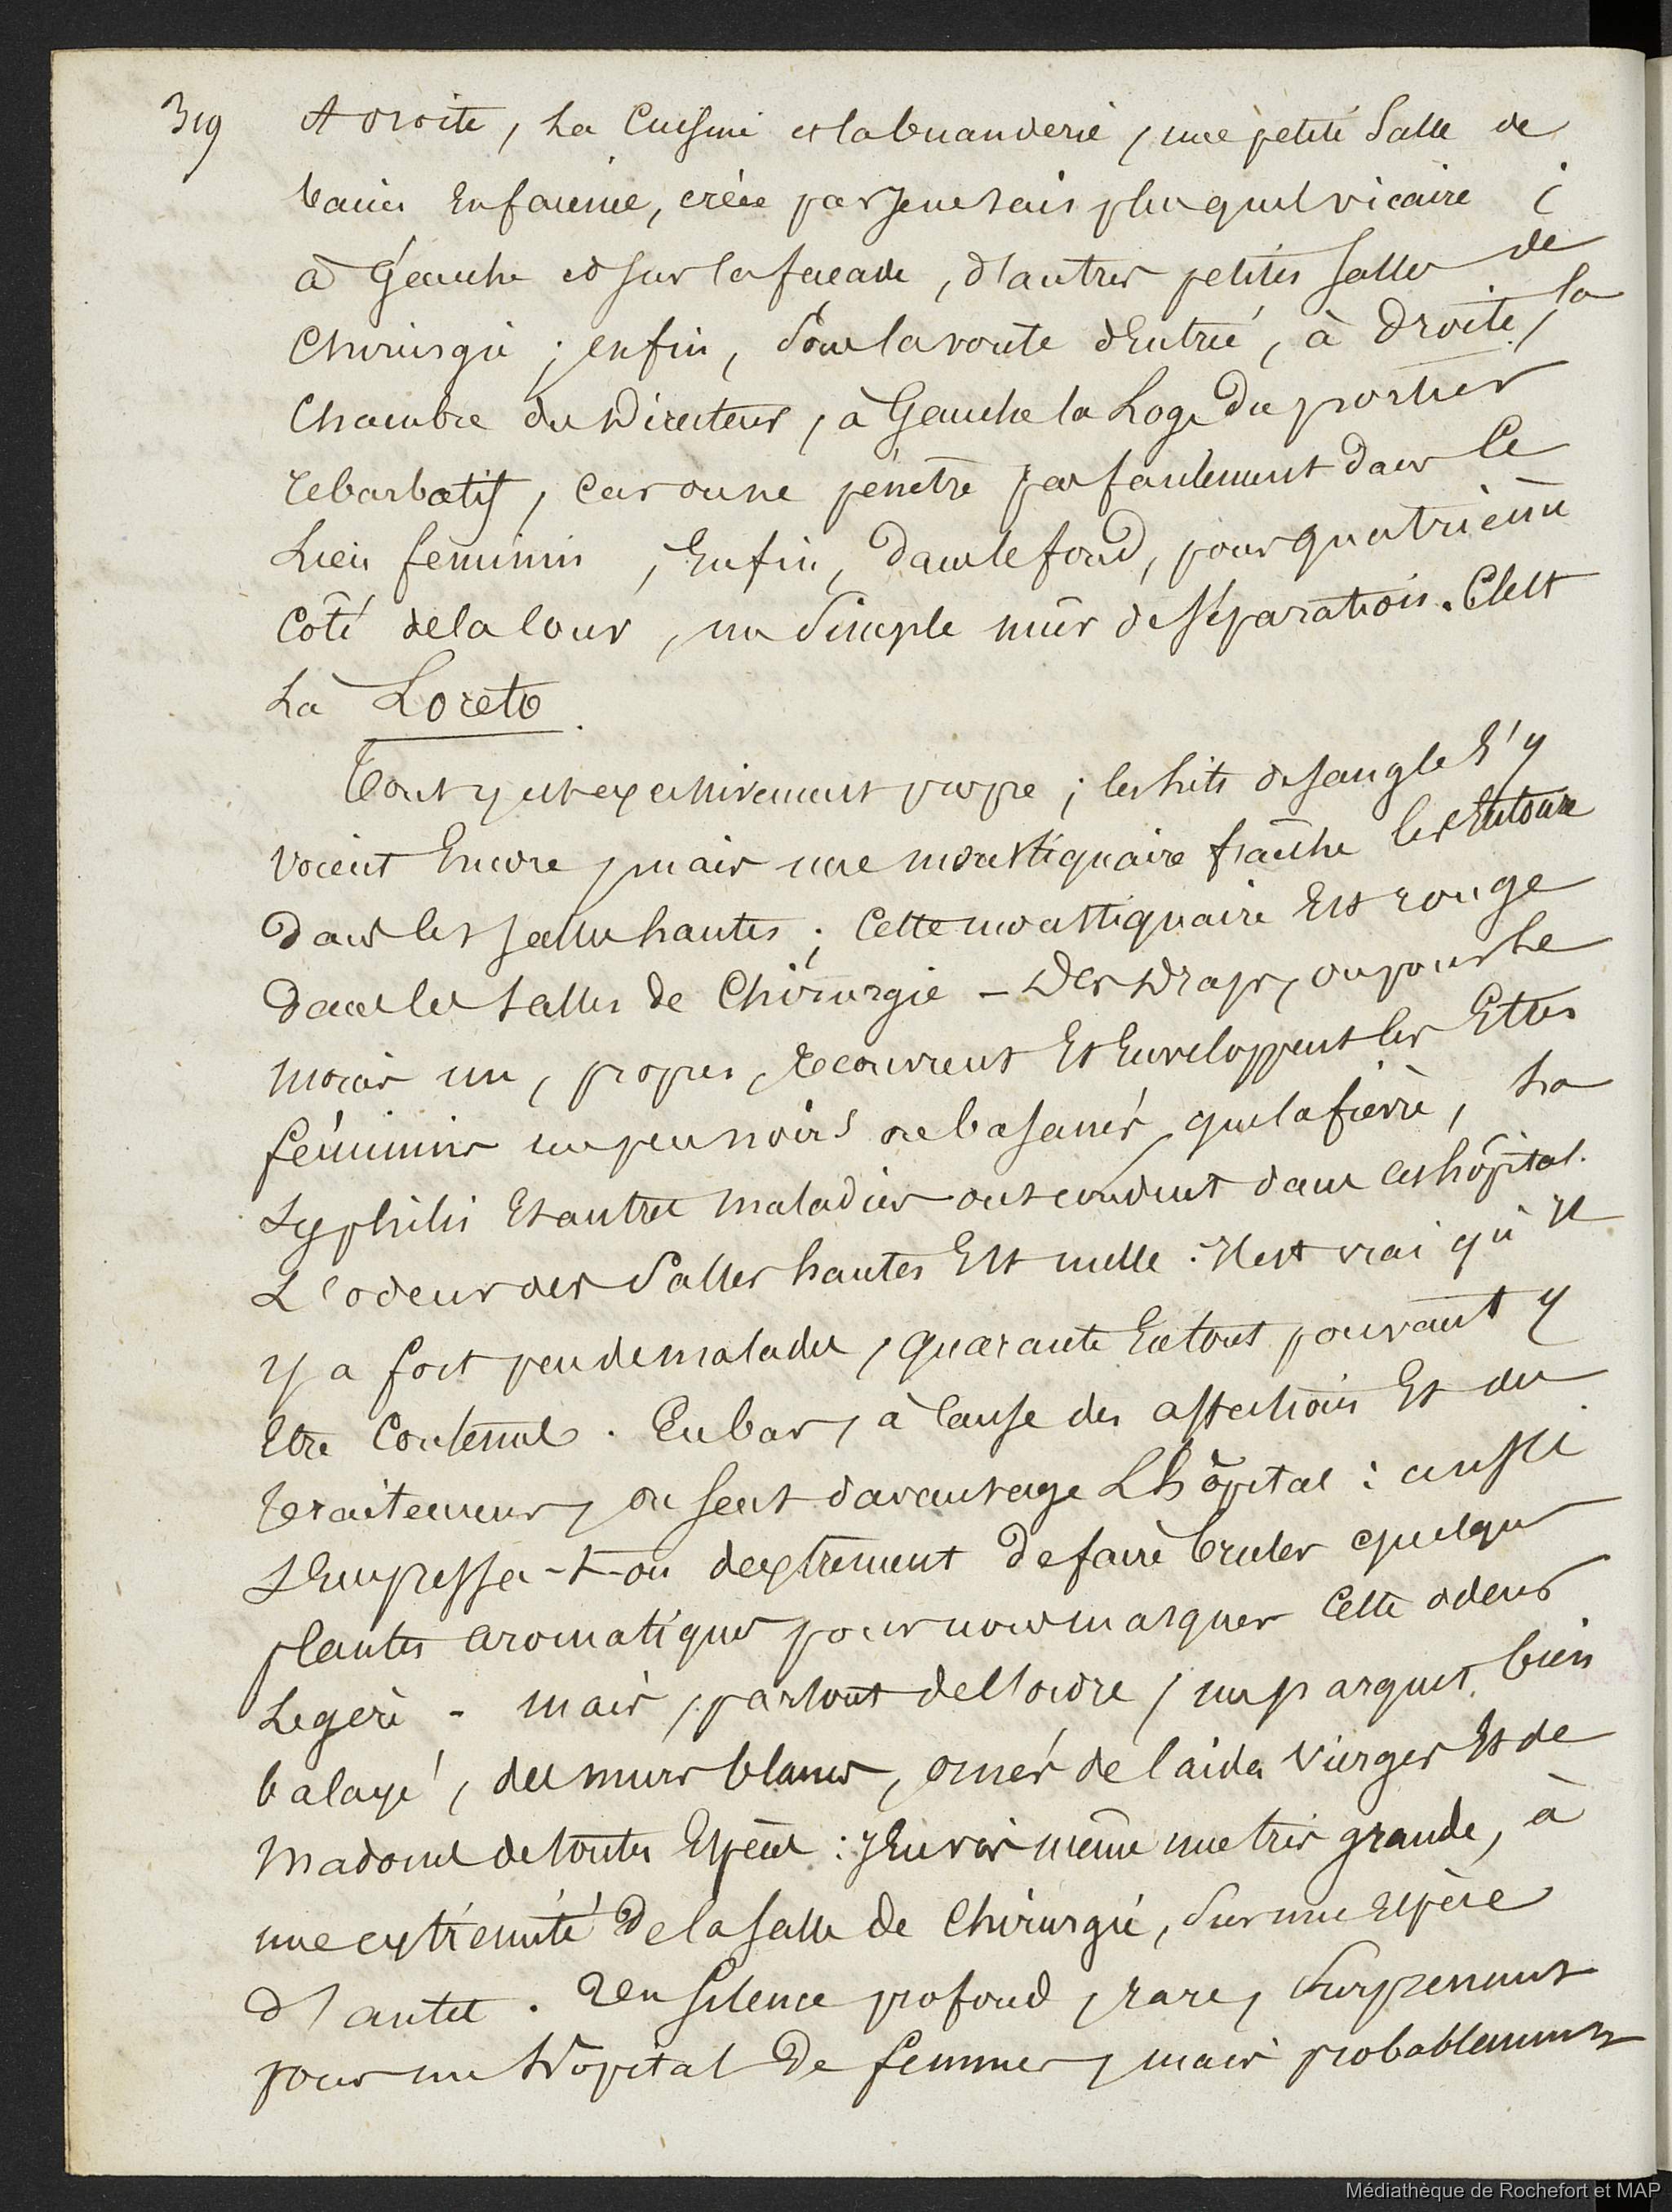 319
A droite, la Cuisine et la buanderie, une petite Salle de
bains en faïence, créée par je ne sais plus quel vicaire ;
à Gauche et sur la façade, d'autres petites salles de
Chirurgie ; enfin, Sous la voute d'Entrée, à Droite, la
Chambre du Directeur, à Gauche la Loge du portier
rebarbatif, Car on ne pénètre pas facilement dans Ce
Lieu féminin, Enfin, Dans le fond, pour quatrième
Côté de la Cour, un Simple mûr de séparation. C'est
Là Loreto.
Tout y est excessivement propre ; les lits de sangles s'y
voient Encore, mais une moustiquaire fraîche les Entoure
Dans les salles hautes ; Cette moustiquaire Est rouge
dans les salles de Chirurgie - Des Draps, ou pour le
moins un, propres, recouvrent Et Enveloppent les Etres
féminins un peu noirs ou basanés, que la fièvre, La
Syphilis Et autres maladies ont conduit dans cet hôpital.
L'odeur des Salles hautes Est nulle. Il est vrai qu'il
y a fort peu de malades, quarante En tout pouvant y
Etre Contenus. En bas, à Cause des affections Et du
traitement, on sent davantage L'hôpital : aussi
S'Empressa-t-on dextrement De faire bruler quelques
plantes aromatiques pour nous masquer Cette odeur
Legère - mais, partout de l'ordre, un parquet bien
balayé, des murs blancs, ornés de laides Vierges Et de
Madones de toutes Espèces : J'En vis même une très grande, à
une extrémité De la salle de Chirurgie, Sur une Espèce
d'autel. Un Silence profond, rare, Surprenant
pour un hôpital De femmes, mais probablement
Médiathèque de Rochefort et MAP